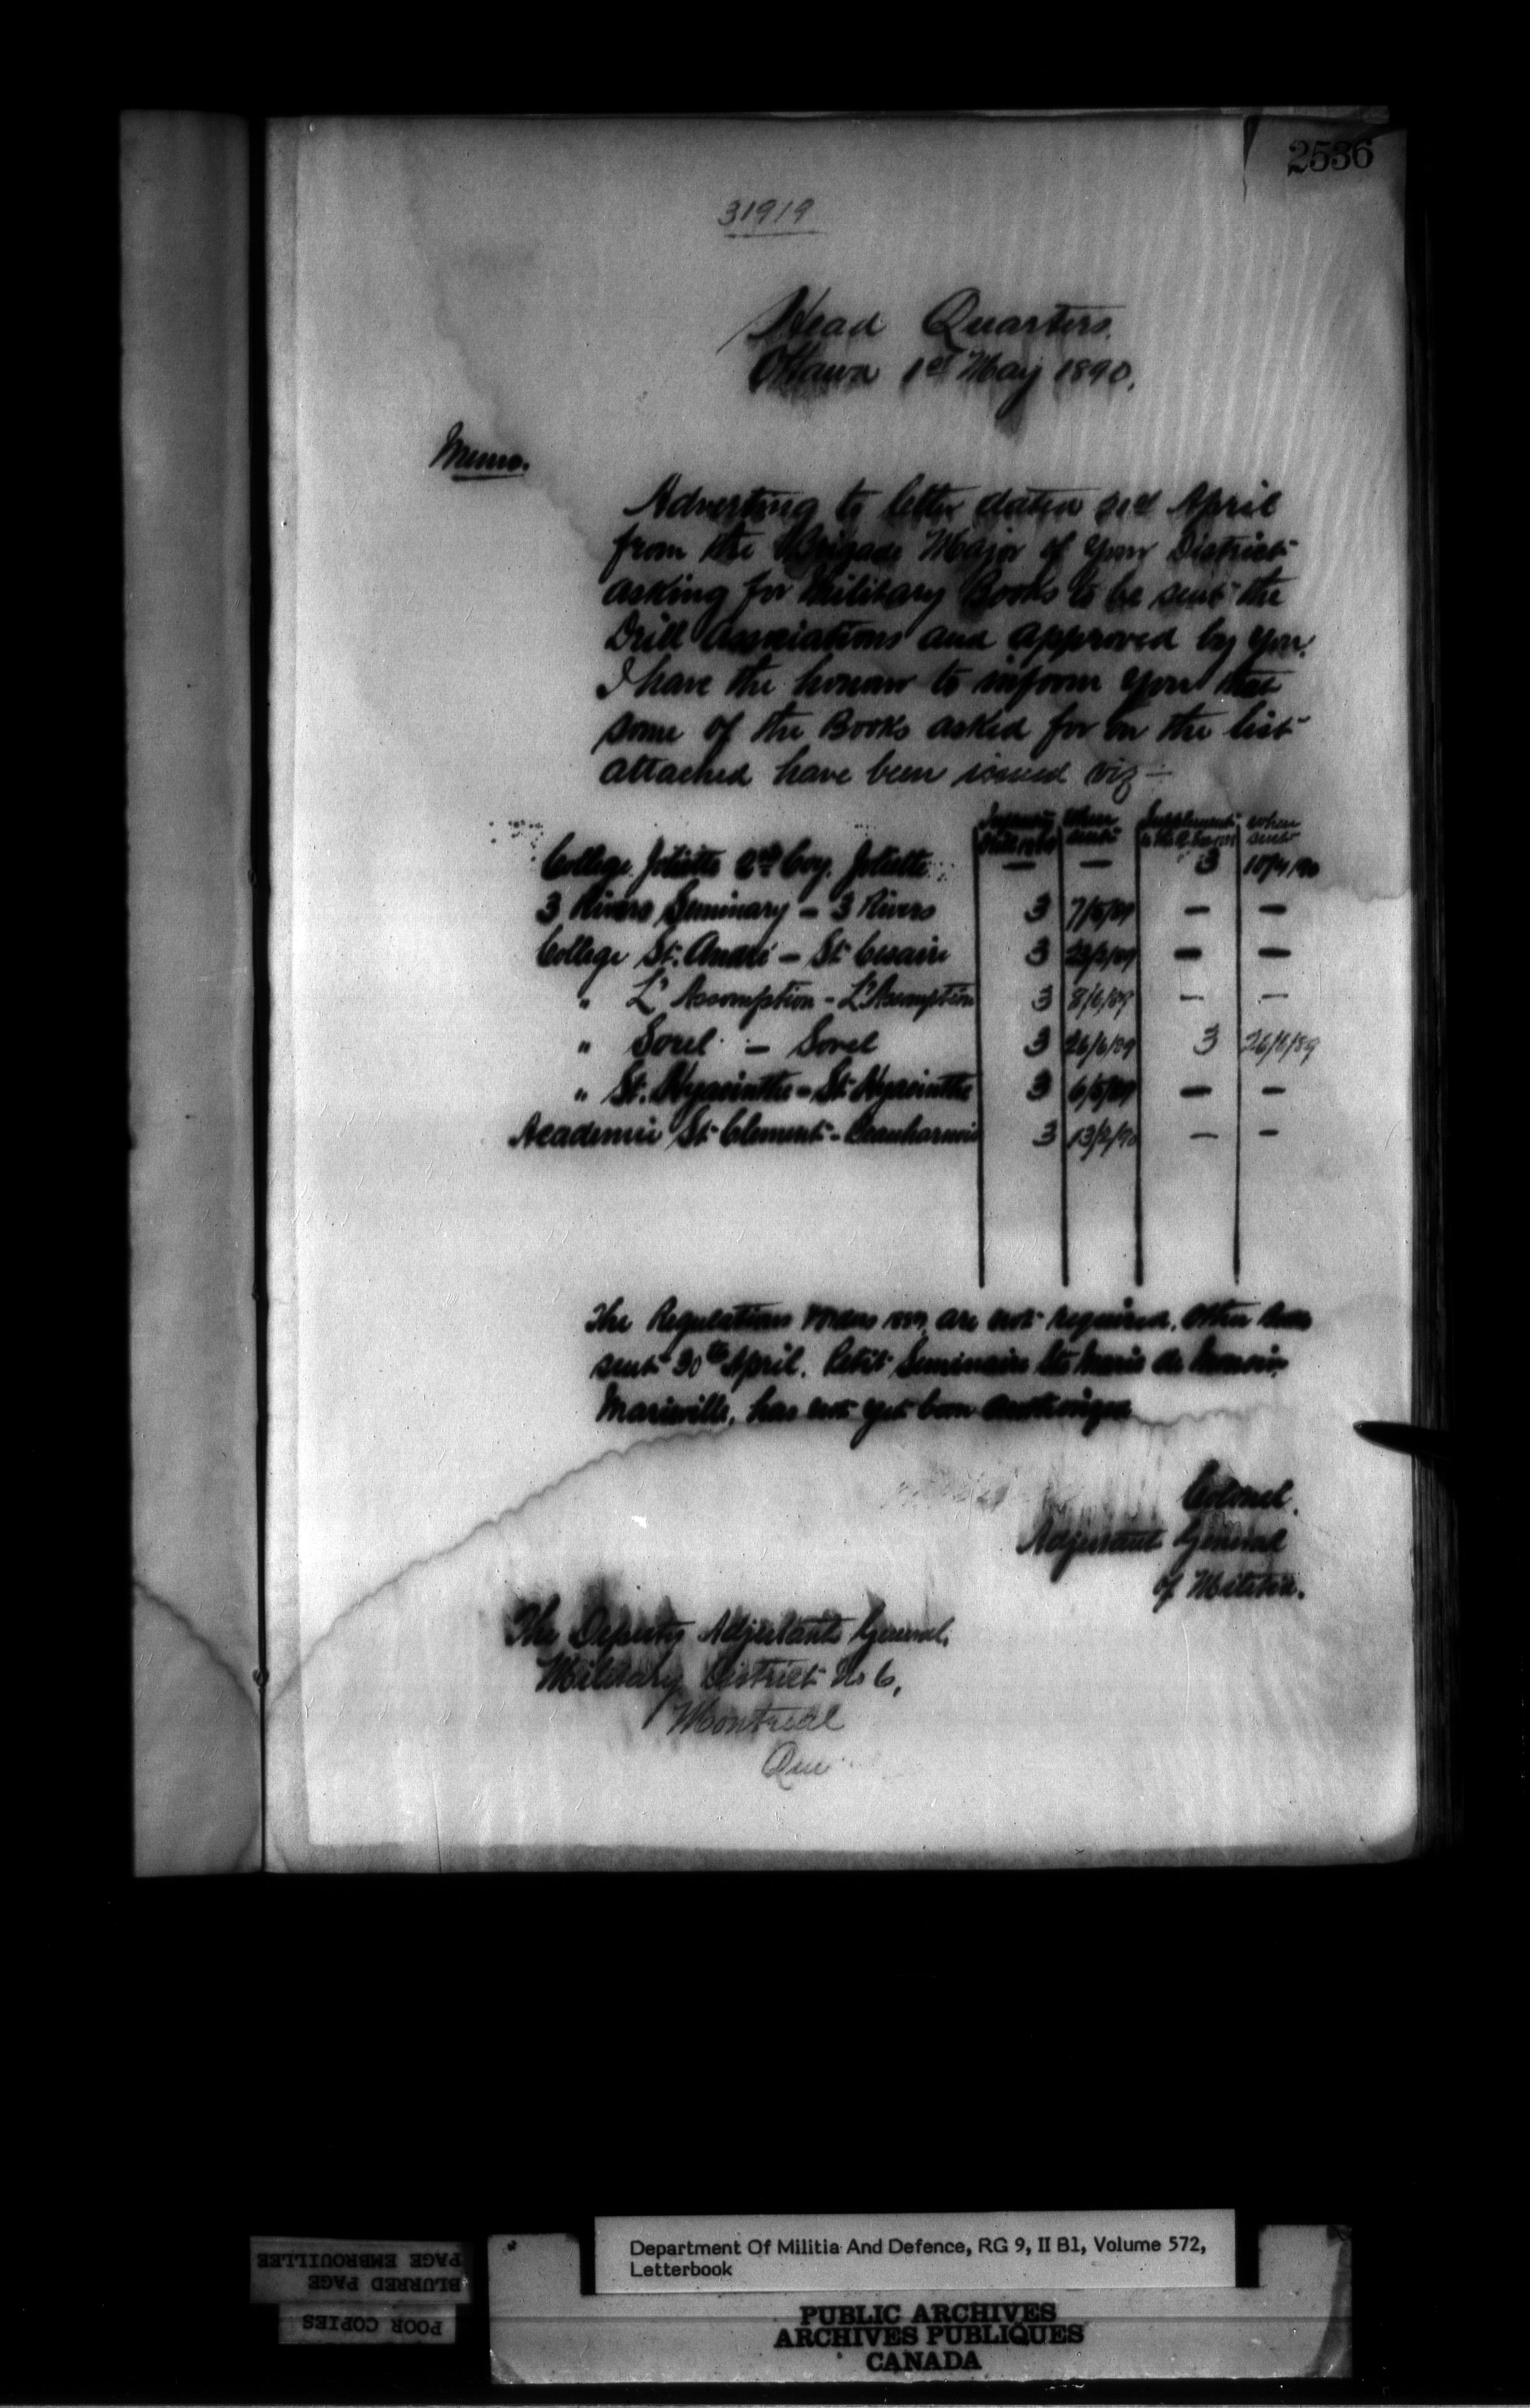 2536
31919
Head Quarters.
Ottawa 1st May 1890.
Memo.
Adverting to letter dated April
from the Brigade Major of your District
asking for Military Books to be sent the
Drill Associations and approved by you.
I have the honour to inform you that
some of the Books asked for on the list
attached have been issued viz –
When sent When sent
College Joliette 2nd Coy. Joliette — — 3
3 Rivers Seminary – 3 Rivers 3 7/5/89 — —
College St. André – St Cesaire 3 — —
" L'Assomption – L'Assomption 3 8/6/89 — —
" Sorel – Sorel 3 26/6/89 3 26/6/89
" St. Hyacinthe – St Hyacinthe 3 6/5/89 — —
Academie St Clement – Beauharnois 3 13/2/90 — —
The Regulations & Orders are not required.
sent 30th April. Petit Seminaire Ste Marie de Monnoir,
Marieville, has not yet been authorized
Colonel.
Adjutant General
of Militia.
The Deputy Adjutant General,
Military District No 6,
Montreal
Que
BLURRED PAGE
PAGE EMBROUILLEE
POOR COPIES
Department Of Militia And Defence, RG 9, II B1, Volume 572,
Letterbook
PUBLIC ARCHIVES
ARCHIVES PUBLIQUES
CANADA